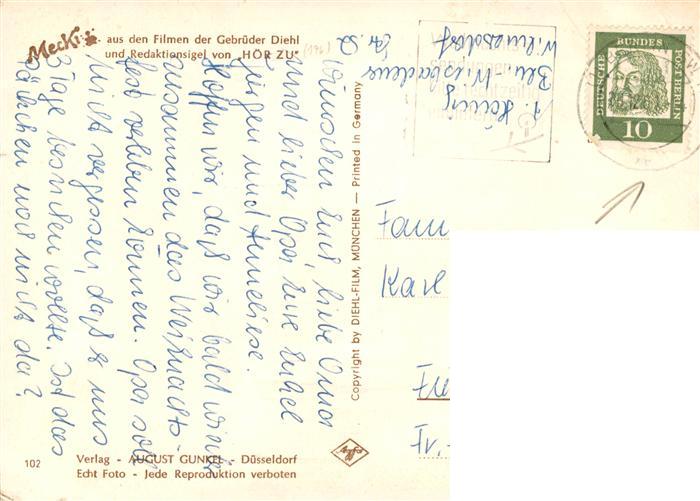 Mecki
aus den Filmen der Gebrüder Diehl
und Redaktionsigel von "HÖR ZU"
(176)
wünschen Euch, liebe Oma
und lieber Opa Eure Enkel
Jürgen und Anneliese.
Hoffen wir, daß wir bald wieder
zusammen das Weihnachts-
fest verleben können. Opa soll
nicht vergessen, daß er uns
3 Tage besuchen wollte. Ist das
Päckchen noch nicht da?
Wilmersdorf
Str. 52
Bln-Wiesbadener
A.
DEUTSCHE BUNDES POST BERLIN
10
Fam
Karl
Fr.
Copyright by DIEHL-FILM, MÜNCHEN — Printed in Germany
Agfa
102
Verlag - AUGUST GUNKEL - Düsseldorf
Echt Foto - Jede Reproduktion verboten